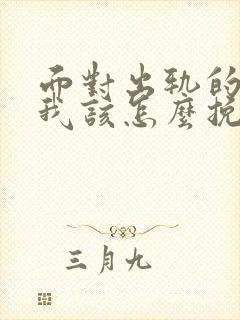 而對出軌的
我該怎麼挽
三月九